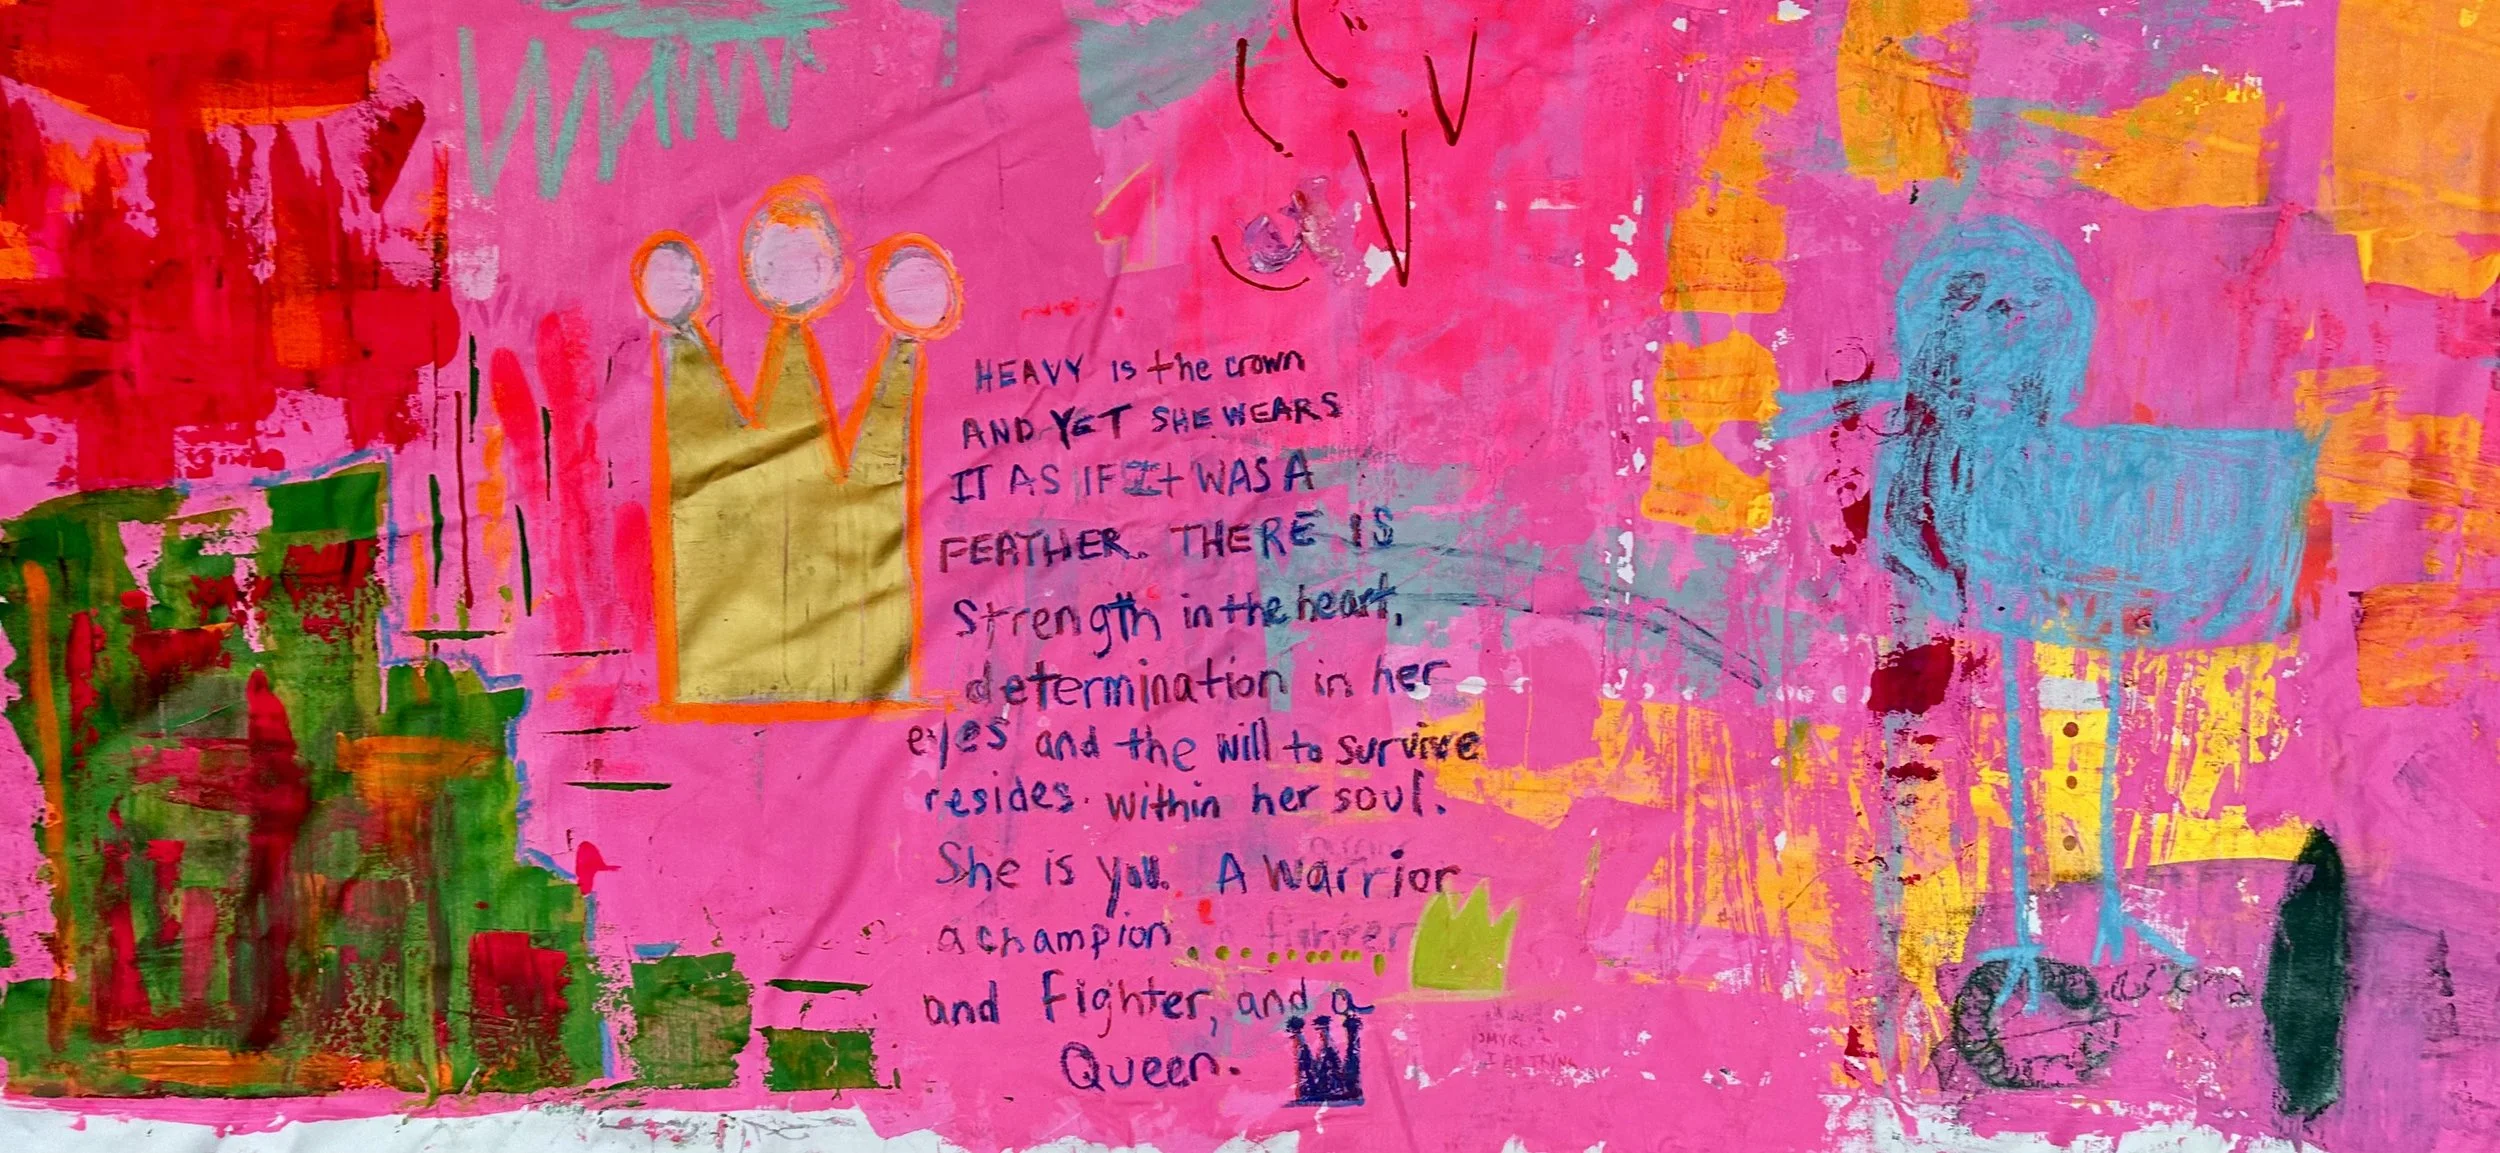 HEAVY is the crown
AND YET SHE WEARS
IT AS IF It WAS A
FEATHER. THERE IS
Strength in the heart,
determination in her
eyes and the will to survive
resides within her soul.
She is you. A Warrior
a champion
and fighter, and a
Queen.